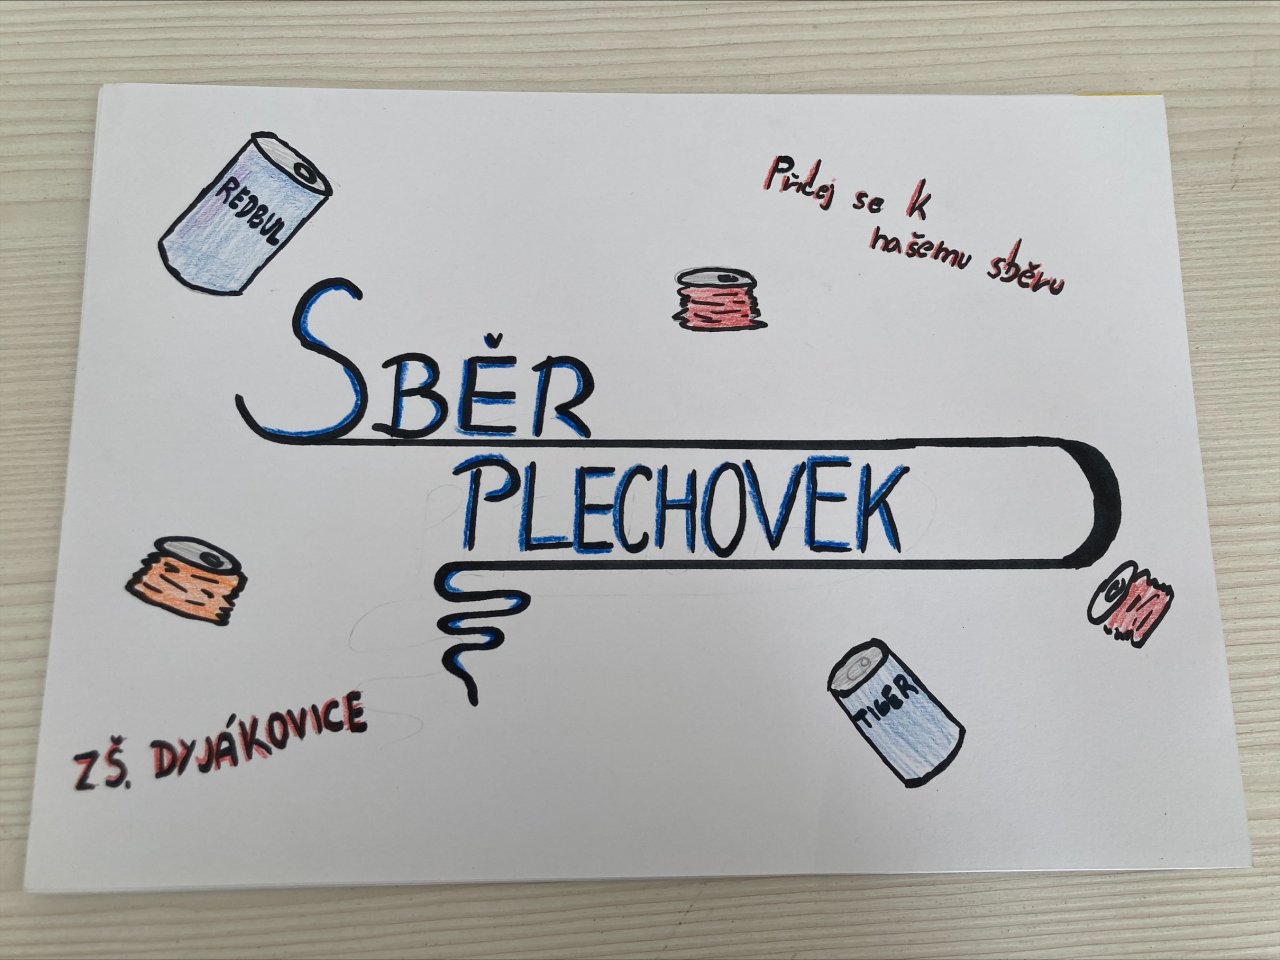 REDBUL
Přidej se k
našemu sběru
SBĚR
PLECHOVEK
TIGER
ZŠ. DYJÁKOVICE